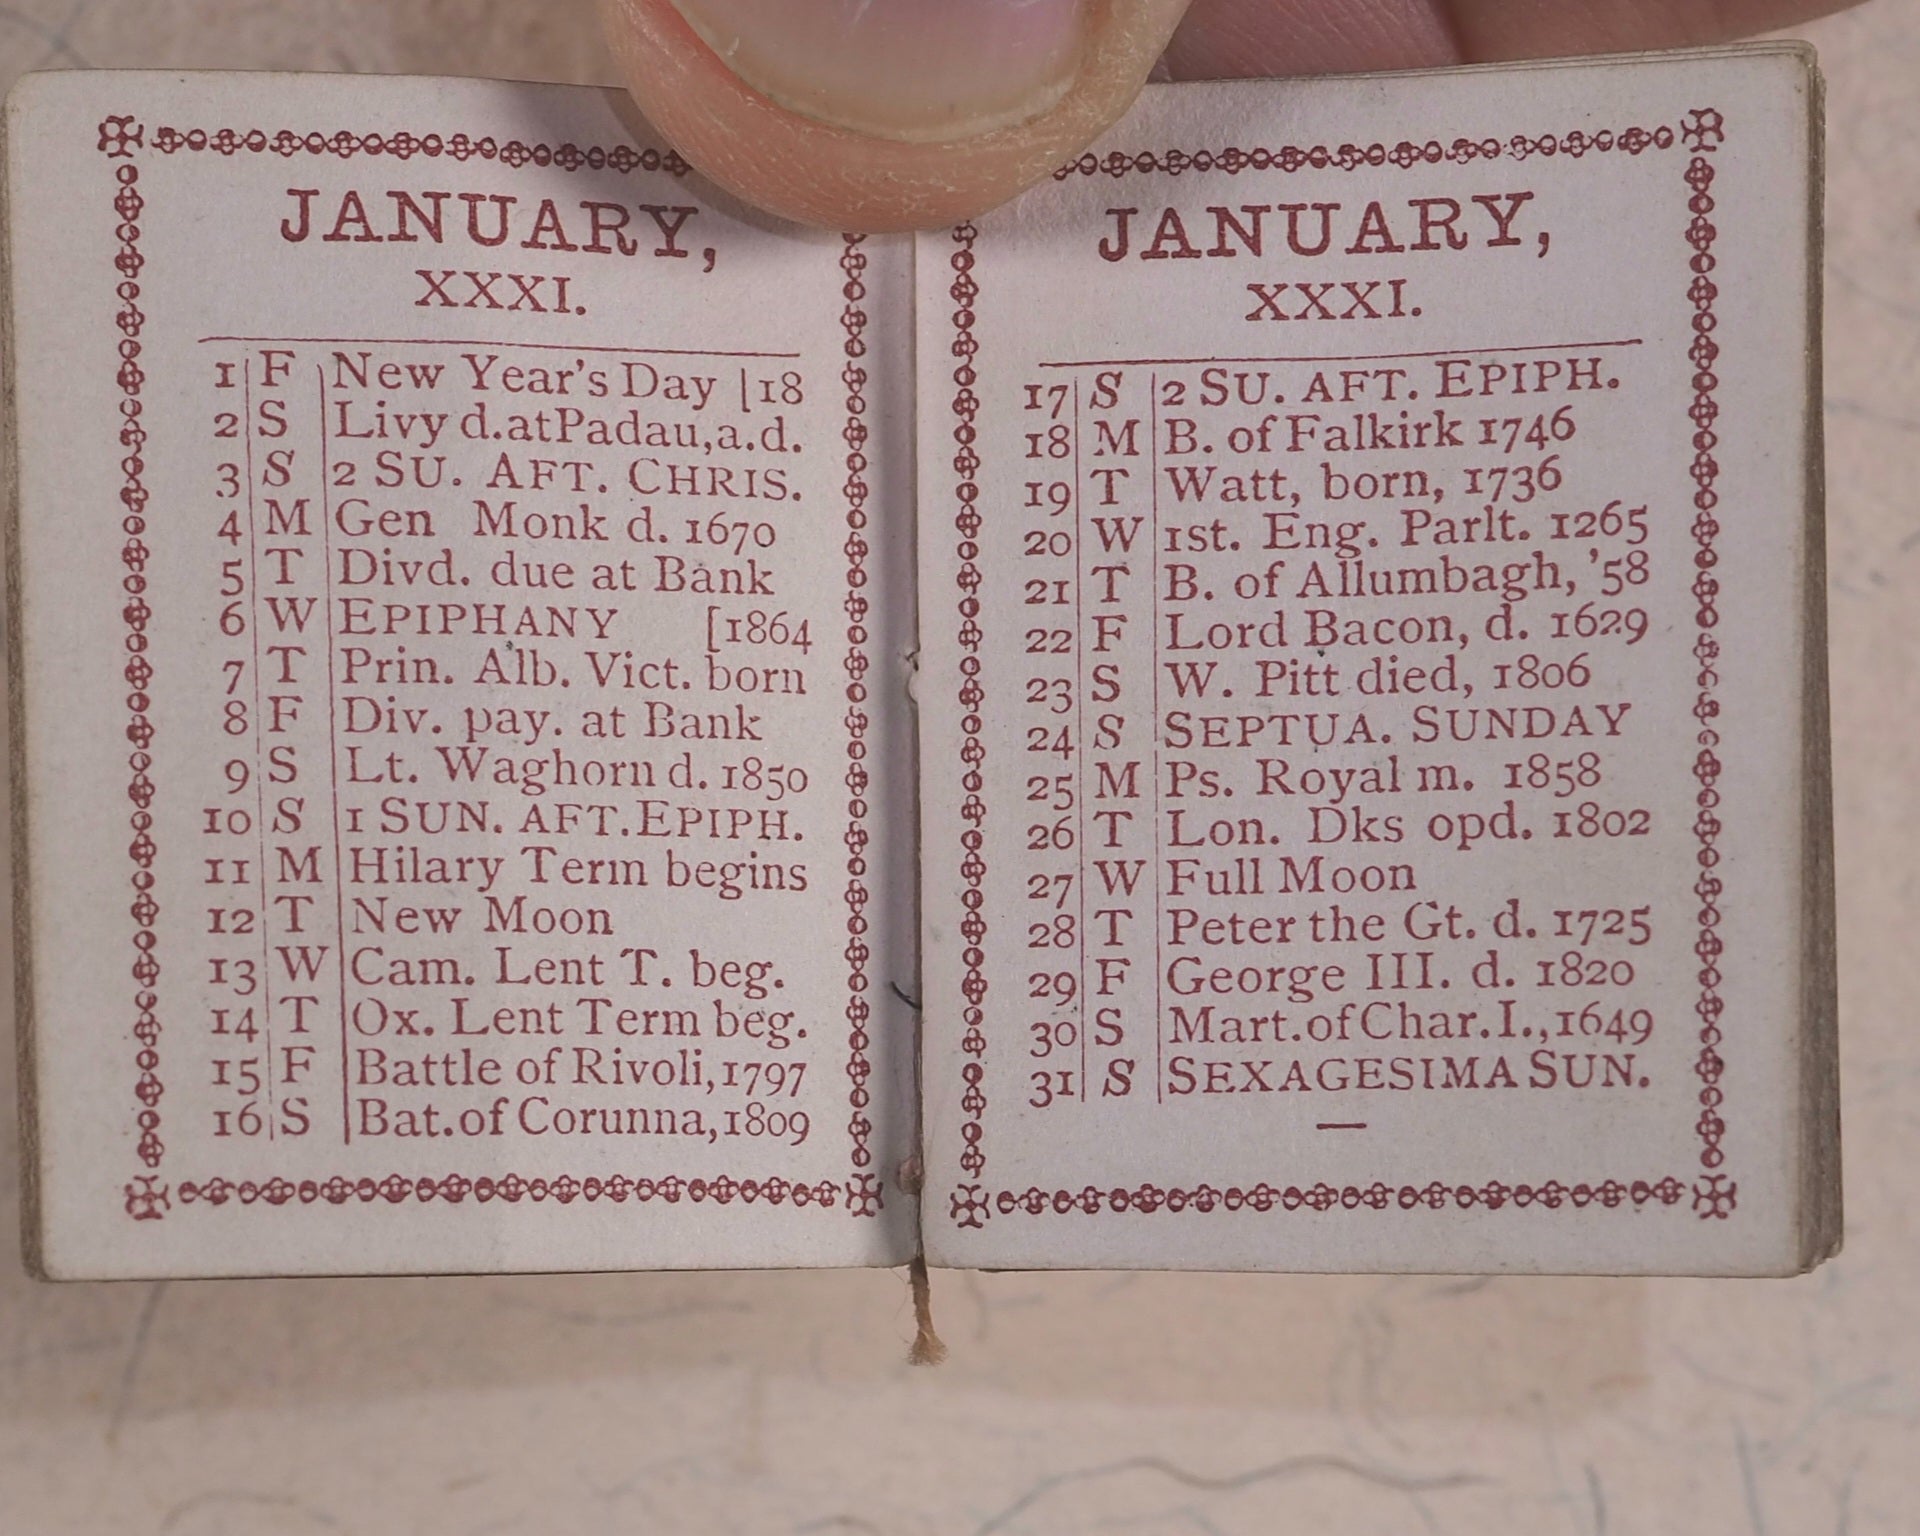 JANUARY,
XXXI.
1 F New Year's Day [18
2 S Livy d. at Padau, a.d.
3 S 2 SU. AFT. CHRIS.
4 M Gen Monk d. 1670
5 T Divd. due at Bank
6 W EPIPHANY [1864
7 T Prin. Alb. Vict. born
8 F Div. pay. at Bank
9 S Lt. Waghorn d. 1850
10 S 1 SUN. AFT. EPIPH.
11 M Hilary Term begins
12 T New Moon
13 W Cam. Lent T. beg.
14 T Ox. Lent Term beg.
15 F Battle of Rivoli, 1797
16 S Bat. of Corunna, 1809
JANUARY,
XXXI.
17 S 2 SU. AFT. EPIPH.
18 M B. of Falkirk 1746
19 T Watt, born, 1736
20 W 1st. Eng. Parlt. 1265
21 T B. of Allumbagh, '58
22 F Lord Bacon, d. 1629
23 S W. Pitt died, 1806
24 S SEPTUA. SUNDAY
25 M Ps. Royal m. 1858
26 T Lon. Dks opd. 1802
27 W Full Moon
28 T Peter the Gt. d. 1725
29 F George III. d. 1820
30 S Mart. of Char. I., 1649
31 S SEXAGESIMA SUN.